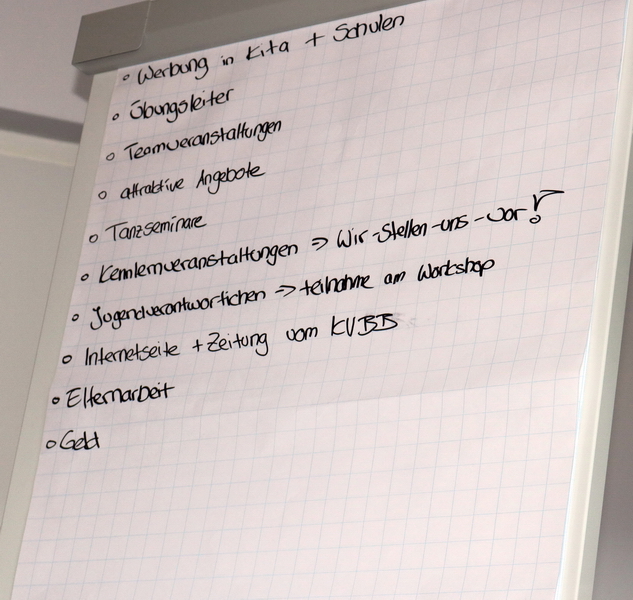 ○ Werbung in Kita + Schulen
○ Übungsleiter
○ Teamveranstaltungen
○ attraktive Angebote
○ Tanzseminare
○ Kennlernveranstaltungen ⇒ Wir-stellen-uns-vor!
○ Jugendverantwortlichen ⇒ teilnahme am Workshop
○ Internetseite + Zeitung vom KVBB
○ Elternarbeit
○ Geld